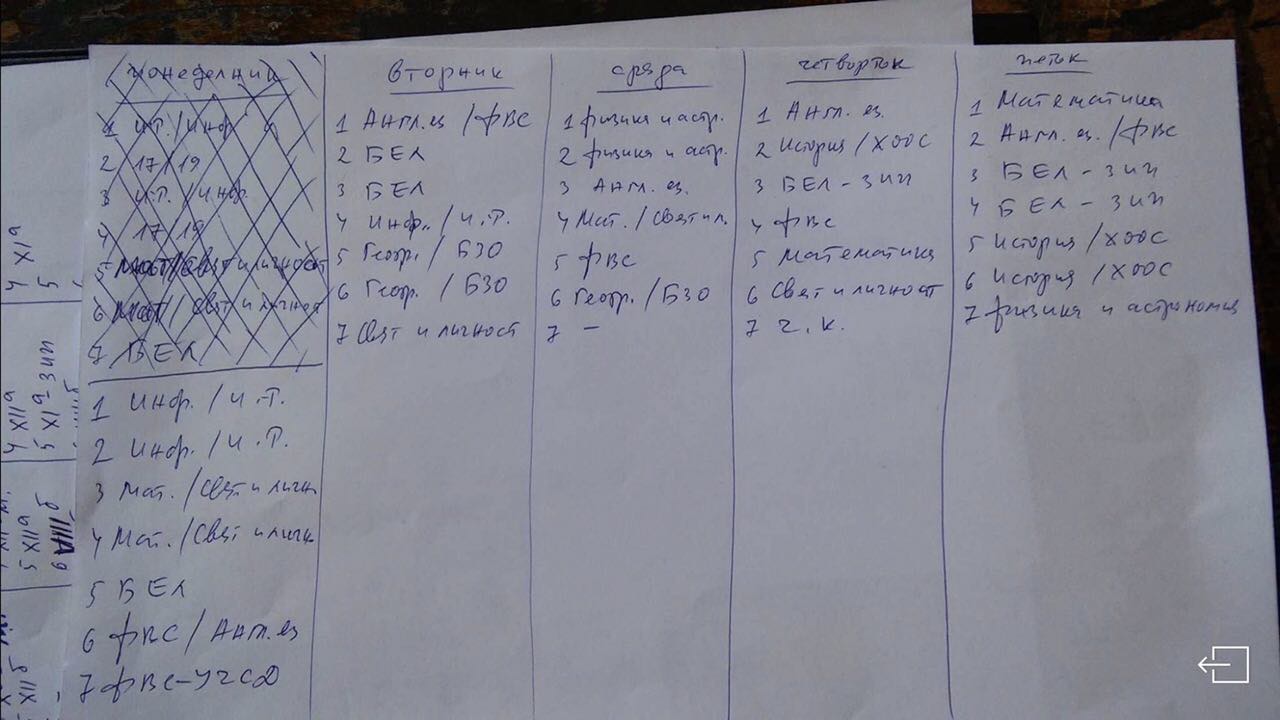 понеделник
1 И.Т./Инф.
2 17/19
3 И.Т./Инф.
4 17/19
5 Мат/Свят и личност
6 Мат/Свят и личност
7 БЕЛ
1 Инф./И.Т.
2 Инф./И.Т.
3 Мат./Свят и личн
4 Мат./Свят и личн
5 БЕЛ
6 ФВС/Англ. ез
7 ФВС-УЧСД
вторник
1 Англ. ез/ФВС
2 БЕЛ
3 БЕЛ
4 Инф./И.Т.
5 Геогр./БЗО
6 Геогр./БЗО
7 Свят и личност
сряда
1 физика и астр.
2 физика и астр.
3 Англ. ез.
4 Мат./Свят и л.
5 ФВС
6 Геогр./БЗО
7 –
четвъртък
1 Англ. ез.
2 История/ХООС
3 БЕЛ - ЗИП
4 ФВС
5 Математика
6 Свят и личност
7 Ч.К.
петък
1 Математика
2 Англ. ез./ФВС
3 БЕЛ - ЗИП
4 БЕЛ - ЗИП
5 История/ХООС
6 История/ХООС
7 физика и астрономия
4 XIа
5
4 XIIа
5 XIа - ЗИП
5 XIIа